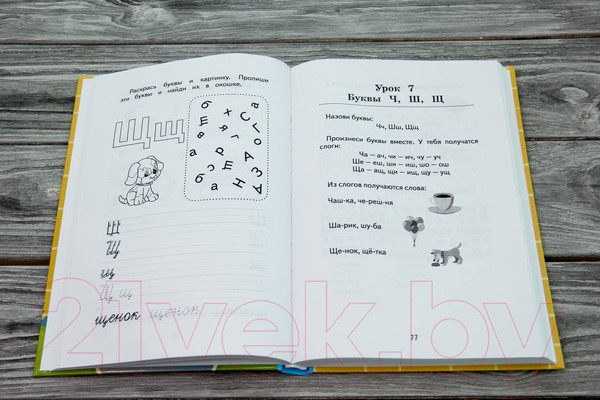 Раскрась буквы и картинку. Пропиши
эти буквы и найди их в окошке.
Щщ
Щ
щ
щ
Щ щ
щенок щенок
Урок 7
Буквы Ч, Ш, Щ
Назови буквы:
Чч, Шш, Щщ
Произнеси буквы вместе. У тебя получатся
слоги:
Ча — ач, чи — ич, чу — уч
Ше — еш, ши — иш, шо — ош
Ща — ащ, щи — ищ, щу — ущ
Из слогов получаются слова:
Чаш-ка, че-реш-ня
Ша-рик, шу-ба
Ще-нок, щё-тка
77
21vek.by